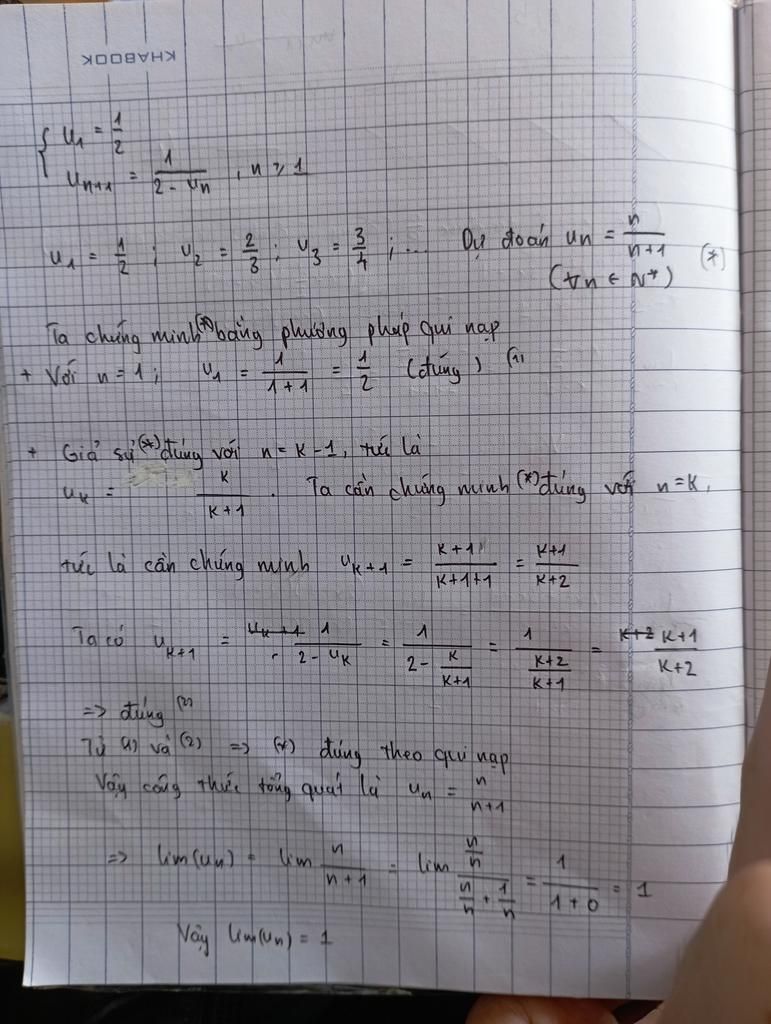 KHABOOK
{ u₁ = 1/2
u_{n+1} = 1/(2 - u_n) , n ≥ 1
u₁ = 1/2 ; u₂ = 2/3 ; u₃ = 3/4 ; ... Dự đoán u_n = n/(n+1) (*)
(∀n ∈ N*)
Ta chứng minh (*) bằng phương pháp qui nạp
+ Với n = 1 ; u₁ = 1/(1+1) = 1/2 (đúng) (1)
+ Giả sử (*) đúng với n = k-1, tức là
u_k = k/(k+1) . Ta cần chứng minh (*) đúng với n = k,
tức là cần chứng minh u_{k+1} = (k+1)/(k+1+1) = (k+1)/(k+2)
Ta có u_{k+1} = 1/(2 - u_k) = 1/(2 - k/(k+1)) = 1/((k+2)/(k+1)) = (k+1)/(k+2)
=> đúng (2)
Từ (1) và (2) => (*) đúng theo qui nạp
Vậy công thức tổng quát là u_n = n/(n+1)
=> lim(u_n) = lim n/(n+1) = lim (n/n)/(n/n + 1/n) = 1/(1+0) = 1
Vậy lim(u_n) = 1